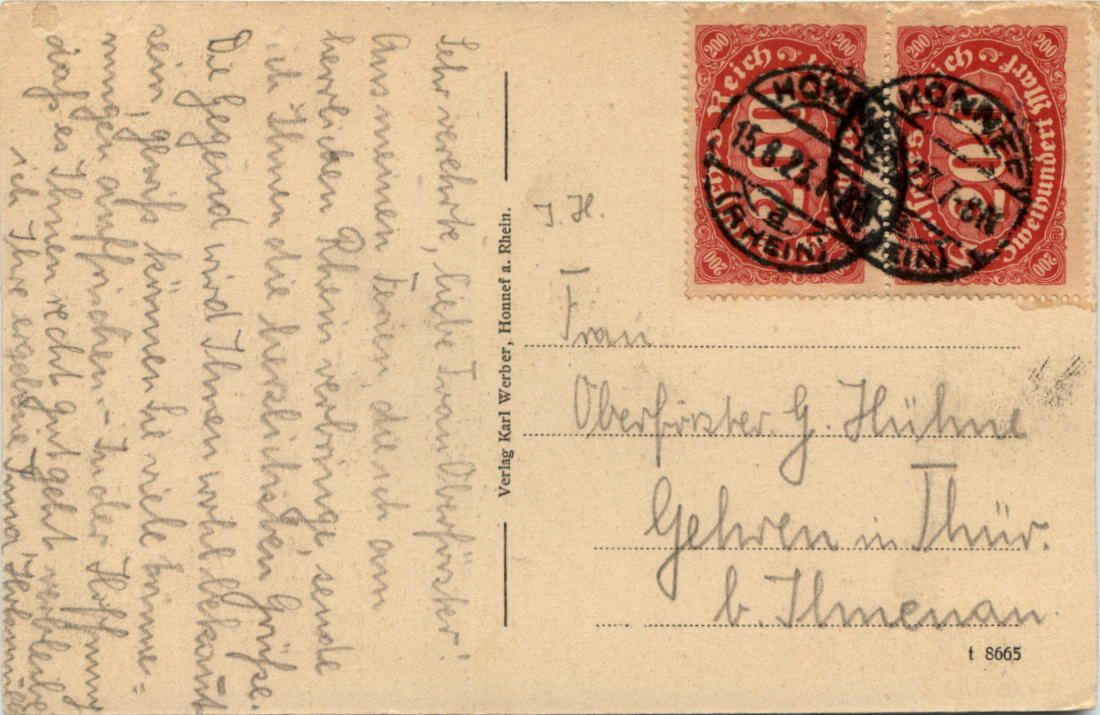 Sehr verehrte, liebe Frau Oberförster!
Aus meinen Ferien, die ich am
herrlichen Rhein verbringe, sende
ich Ihnen die herzlichsten Grüße.
Die Gegend wird Ihnen wohl bekannt
sein, gewiß können Sie viele Erinne=
rungen auffrischen. - In der Hoffnung
daß es Ihnen recht gut geht verbleibe
ich Ihre ergebene
Verlag Karl Werber, Honnef a. Rhein.
200 200
Deutsches Reich
Zweihundert Mark
200
200 200
200 200
Deutsches Reich
Zweihundert Mark
200
200 200
HONNEF
15.8.23.
a
(RHEIN)
HONNEF
23.7-8N
(RHEIN)
J. H.
Frau
Oberförster G. Hühne
Gehren in Thür.
b. Ilmenau.
t 8665